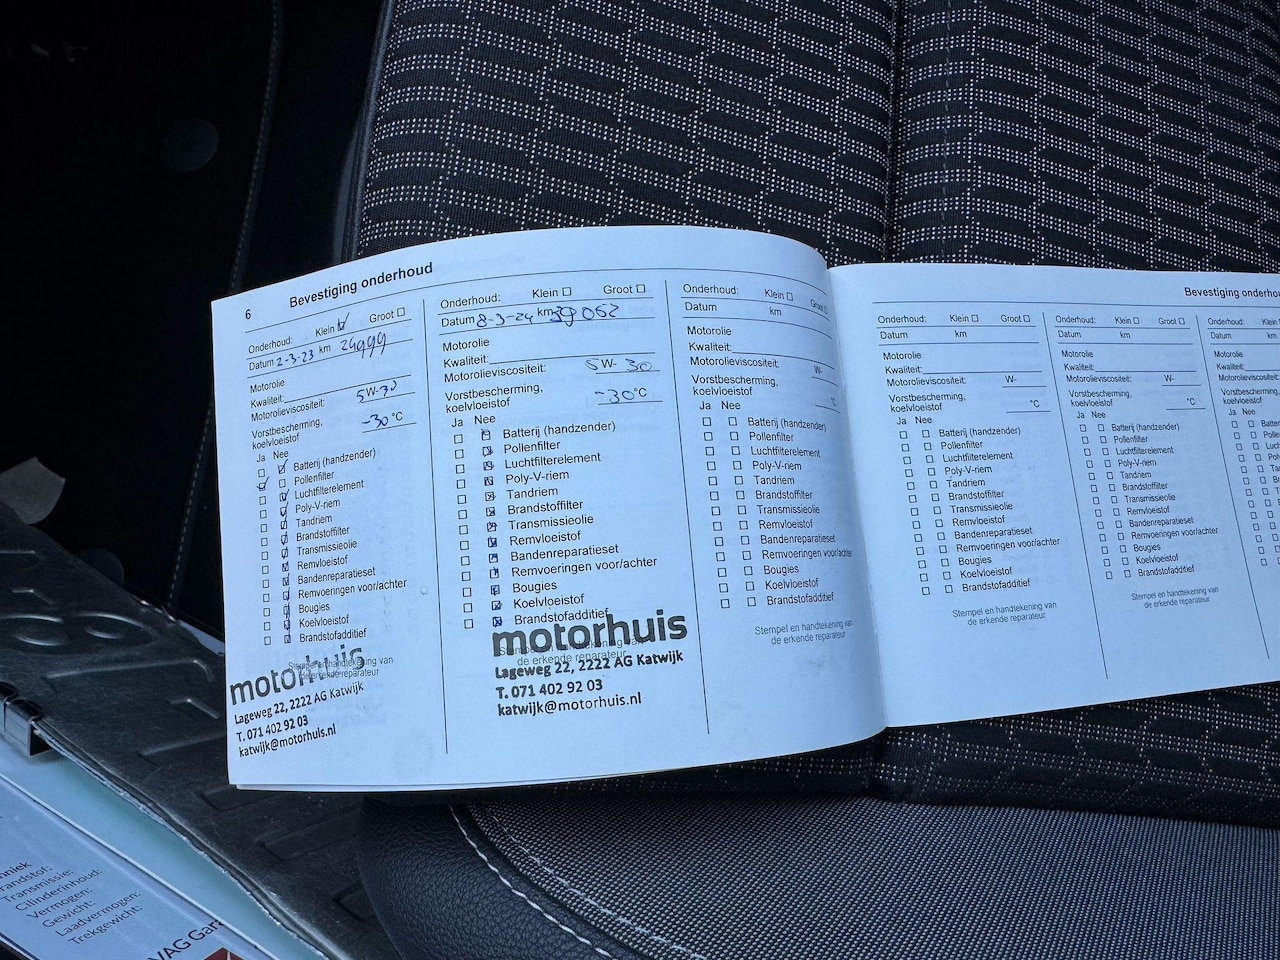 6 Bevestiging onderhoud
Onderhoud: Klein Groot
Datum 2-3-23 km 24999
Motorolie
Kwaliteit:
Motorolieviscositeit: 5W-30
Vorstbescherming,
koelvloeistof -30°C
Ja Nee
Batterij (handzender)
Pollenfilter
Luchtfilterelement
Poly-V-riem
Tandriem
Brandstoffilter
Transmissieolie
Remvloeistof
Bandenreparatieset
Remvoeringen voor/achter
Bougies
Koelvloeistof
Brandstofadditief
Stempel en handtekening van
de erkende reparateur
motorhuis
Lageweg 22, 2222 AG Katwijk
T. 071 402 92 03
katwijk@motorhuis.nl
Onderhoud: Klein Groot
Datum 8-3-24 km 39062
Motorolie
Kwaliteit:
Motorolieviscositeit: 5W-30
Vorstbescherming,
koelvloeistof -30°C
Ja Nee
Batterij (handzender)
Pollenfilter
Luchtfilterelement
Poly-V-riem
Tandriem
Brandstoffilter
Transmissieolie
Remvloeistof
Bandenreparatieset
Remvoeringen voor/achter
Bougies
Koelvloeistof
Brandstofadditief
de erkende reparateur
motorhuis
Lageweg 22, 2222 AG Katwijk
T. 071 402 92 03
katwijk@motorhuis.nl
Onderhoud: Klein Groot
Datum km
Motorolie
Kwaliteit:
Motorolieviscositeit: W-
Vorstbescherming,
koelvloeistof °C
Ja Nee
Batterij (handzender)
Pollenfilter
Luchtfilterelement
Poly-V-riem
Tandriem
Brandstoffilter
Transmissieolie
Remvloeistof
Bandenreparatieset
Remvoeringen voor/achter
Bougies
Koelvloeistof
Brandstofadditief
Stempel en handtekening van
de erkende reparateur
Bevestiging onderhou
Onderhoud: Klein Groot
Datum km
Motorolie
Kwaliteit:
Motorolieviscositeit: W-
Vorstbescherming,
koelvloeistof °C
Ja Nee
Batterij (handzender)
Pollenfilter
Luchtfilterelement
Poly-V-riem
Tandriem
Brandstoffilter
Transmissieolie
Remvloeistof
Bandenreparatieset
Remvoeringen voor/achter
Bougies
Koelvloeistof
Brandstofadditief
Stempel en handtekening van
de erkende reparateur
Onderhoud: Klein Groot
Datum km
Motorolie
Kwaliteit:
Motorolieviscositeit: W-
Vorstbescherming,
koelvloeistof °C
Ja Nee
Batterij (handzender)
Pollenfilter
Luchtfilterelement
Poly-V-riem
Tandriem
Brandstoffilter
Transmissieolie
Remvloeistof
Bandenreparatieset
Remvoeringen voor/achter
Bougies
Koelvloeistof
Brandstofadditief
Stempel en handtekening van
de erkende reparateur
Onderhoud: Klein
Datum km
Motorolie
Kwaliteit:
Motorolieviscositeit:
Vorstbescherming,
koelvloeistof
Ja Nee
Transmissie:
Cilinderinhoud:
Vermogen:
Gewicht:
Laadvermogen:
Trekgewicht: